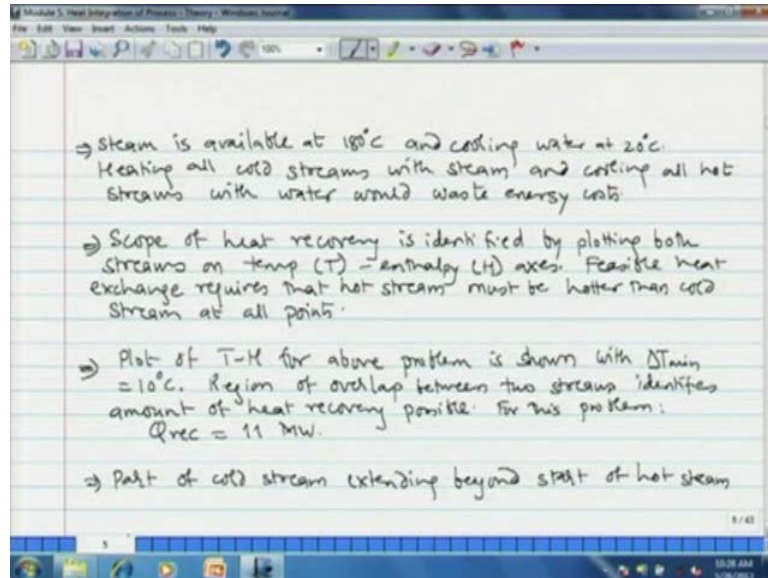 Module 5. Heat Integration of Process - Theory - Windows Journal
File Edit View Insert Actions Tools Help
100%
⇒ Steam is available at 180°C and cooling water at 20°C.
Heating all cold streams with steam and cooling all hot
streams with water would waste energy costs.
⇒ Scope of heat recovery is identified by plotting both
streams on temp (T) - enthalpy (H) axes. Feasible heat
exchange requires that hot stream must be hotter than cold
stream at all points.
⇒ Plot of T-H for above problem is shown with ΔTmin
= 10°C. Region of overlap between two streams identifies
amount of heat recovery possible. For this problem:
Qrec = 11 MW.
⇒ Part of cold stream extending beyond start of hot steam
5/43
5
10:28 AM